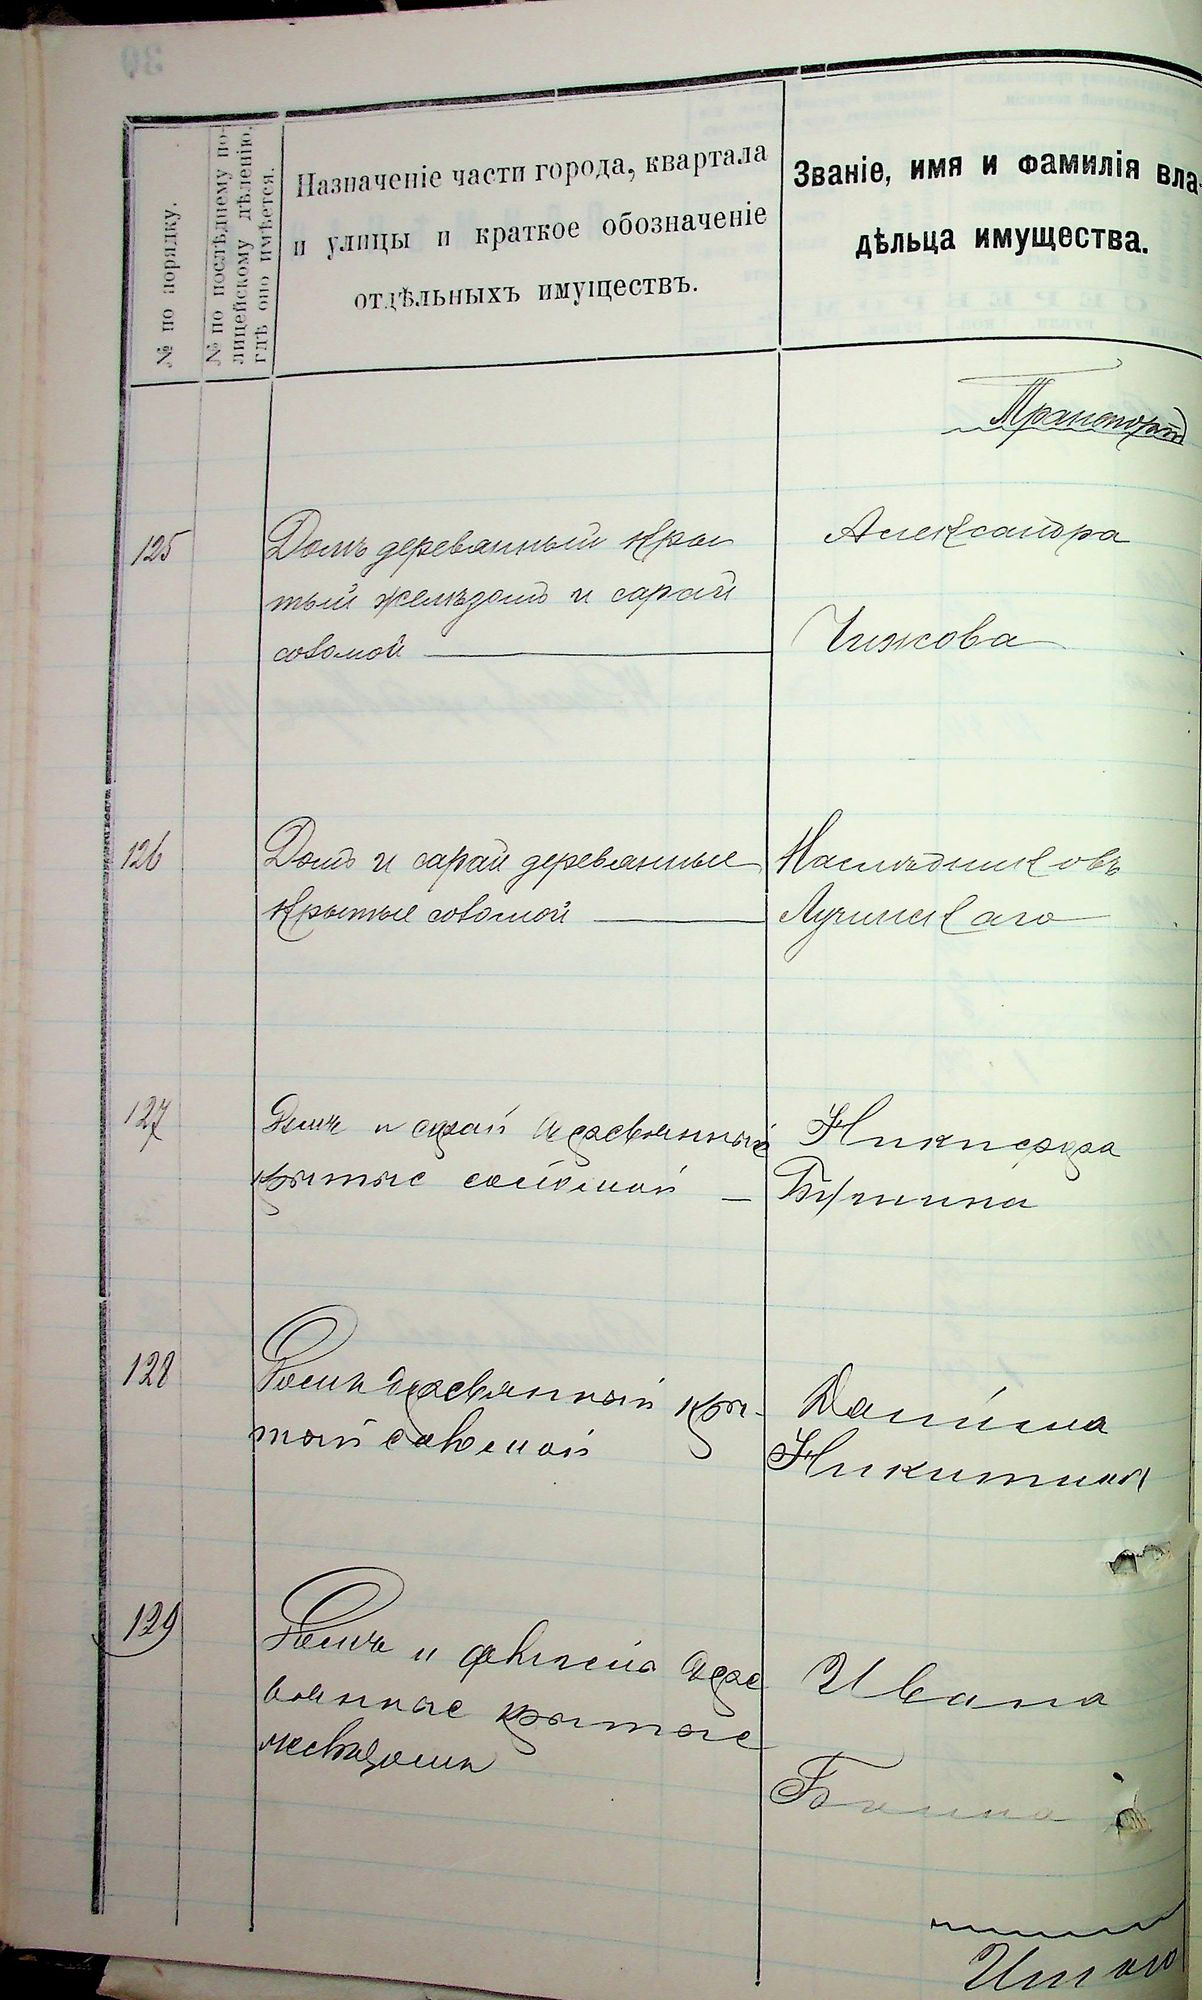 № по порядку.
№ по послѣднему по-
лицейскому дѣленію,
гдѣ оно имѣется.
Назначеніе части города, квартала
и улицы и краткое обозначеніе
отдѣльныхъ имуществъ.
Званіе, имя и фамилія вла-
дѣльца имущества.
Транспортъ
125
Домъ деревянный кры
тый желѣзомъ и сарай
соломой
Александра
Чижова
126
Домъ и сарай деревянные
крытые соломой
Наслѣдниковъ
Лучинскаго
127
Домъ и сарай деревянные
крытые соломой —
Никифора
128
Домъ деревянный кры-
тый соломой
Даніила
Никитина
129
Домъ и флигель дере
вянные крытые
желѣзомъ
Ивана
Итого